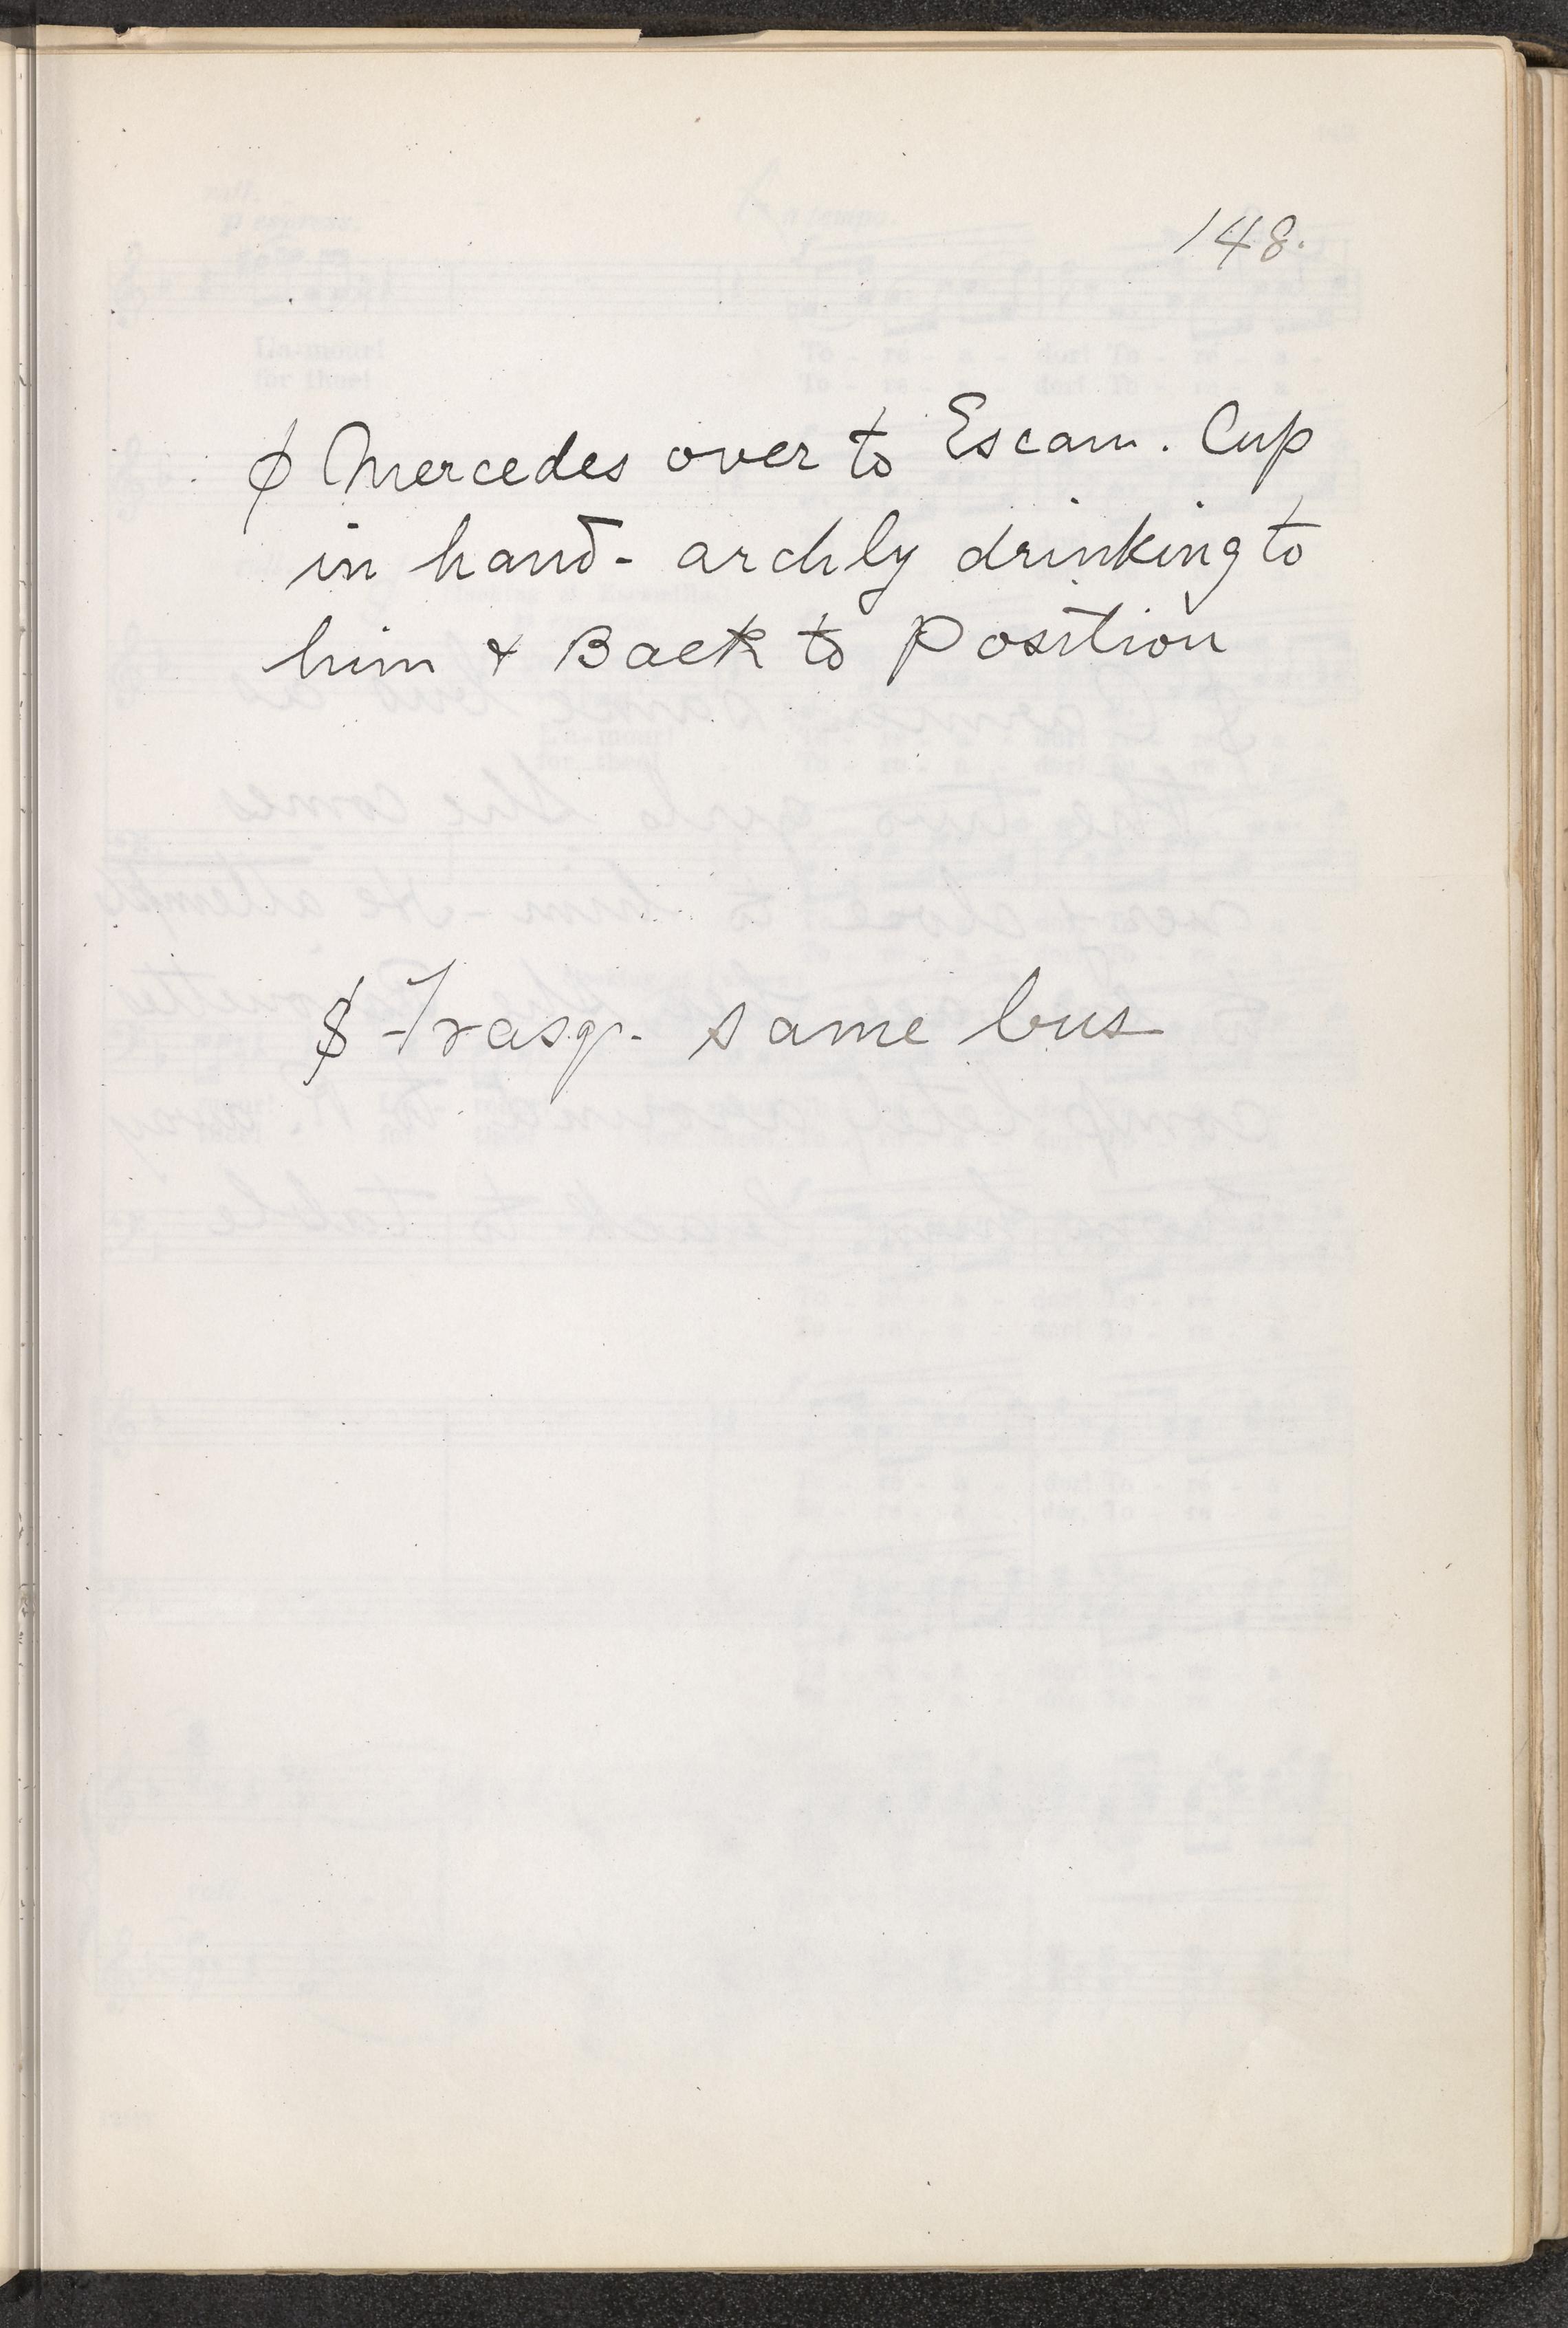 148.
ϕ Mercedes over to Escam. Cup
in hand - archly drinking to
him & Back to Position
$ Frasq. same bus